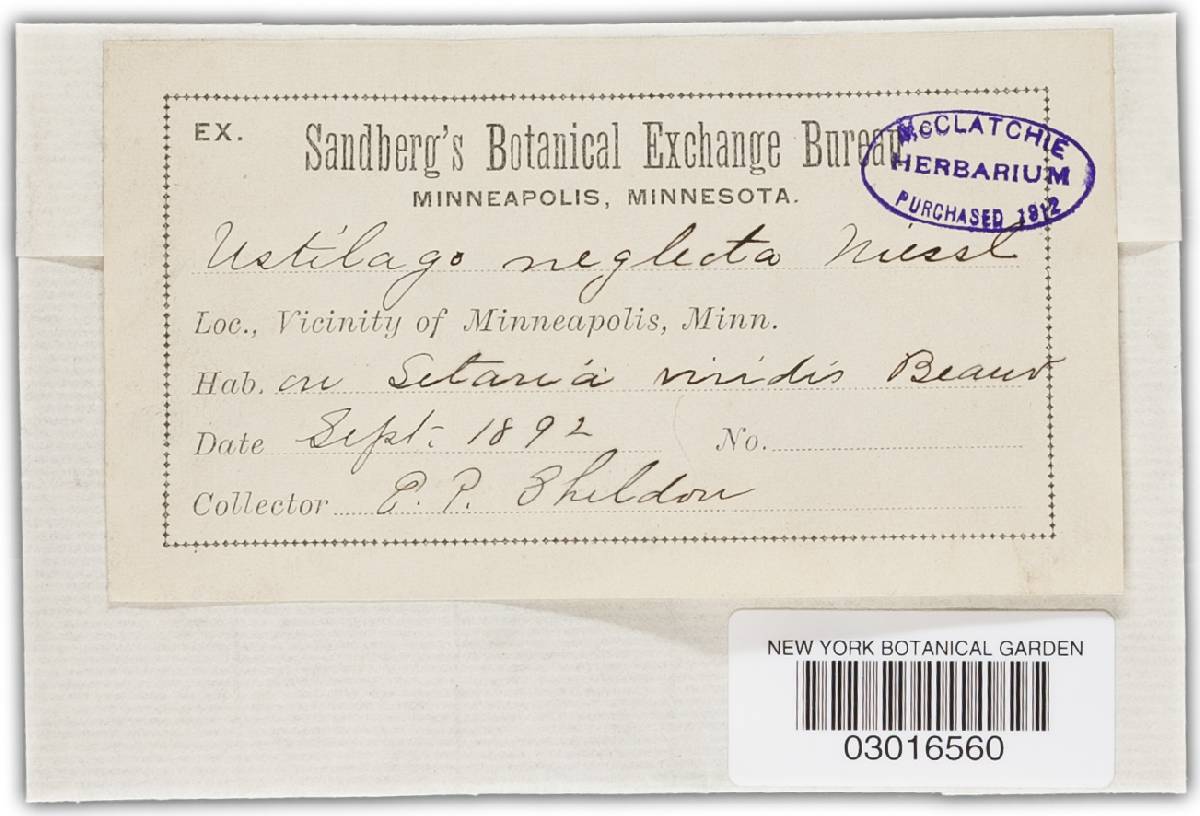 EX. Sandberg's Botanical Exchange Bureau
MINNEAPOLIS, MINNESOTA.
McCLATCHIE
HERBARIUM
PURCHASED 1912
Ustilago neglecta Niessl
Loc., Vicinity of Minneapolis, Minn.
Hab. on Setaria viridis Beauv
Date Sept. 1892 No.
Collector E. P. Sheldon
NEW YORK BOTANICAL GARDEN
03016560